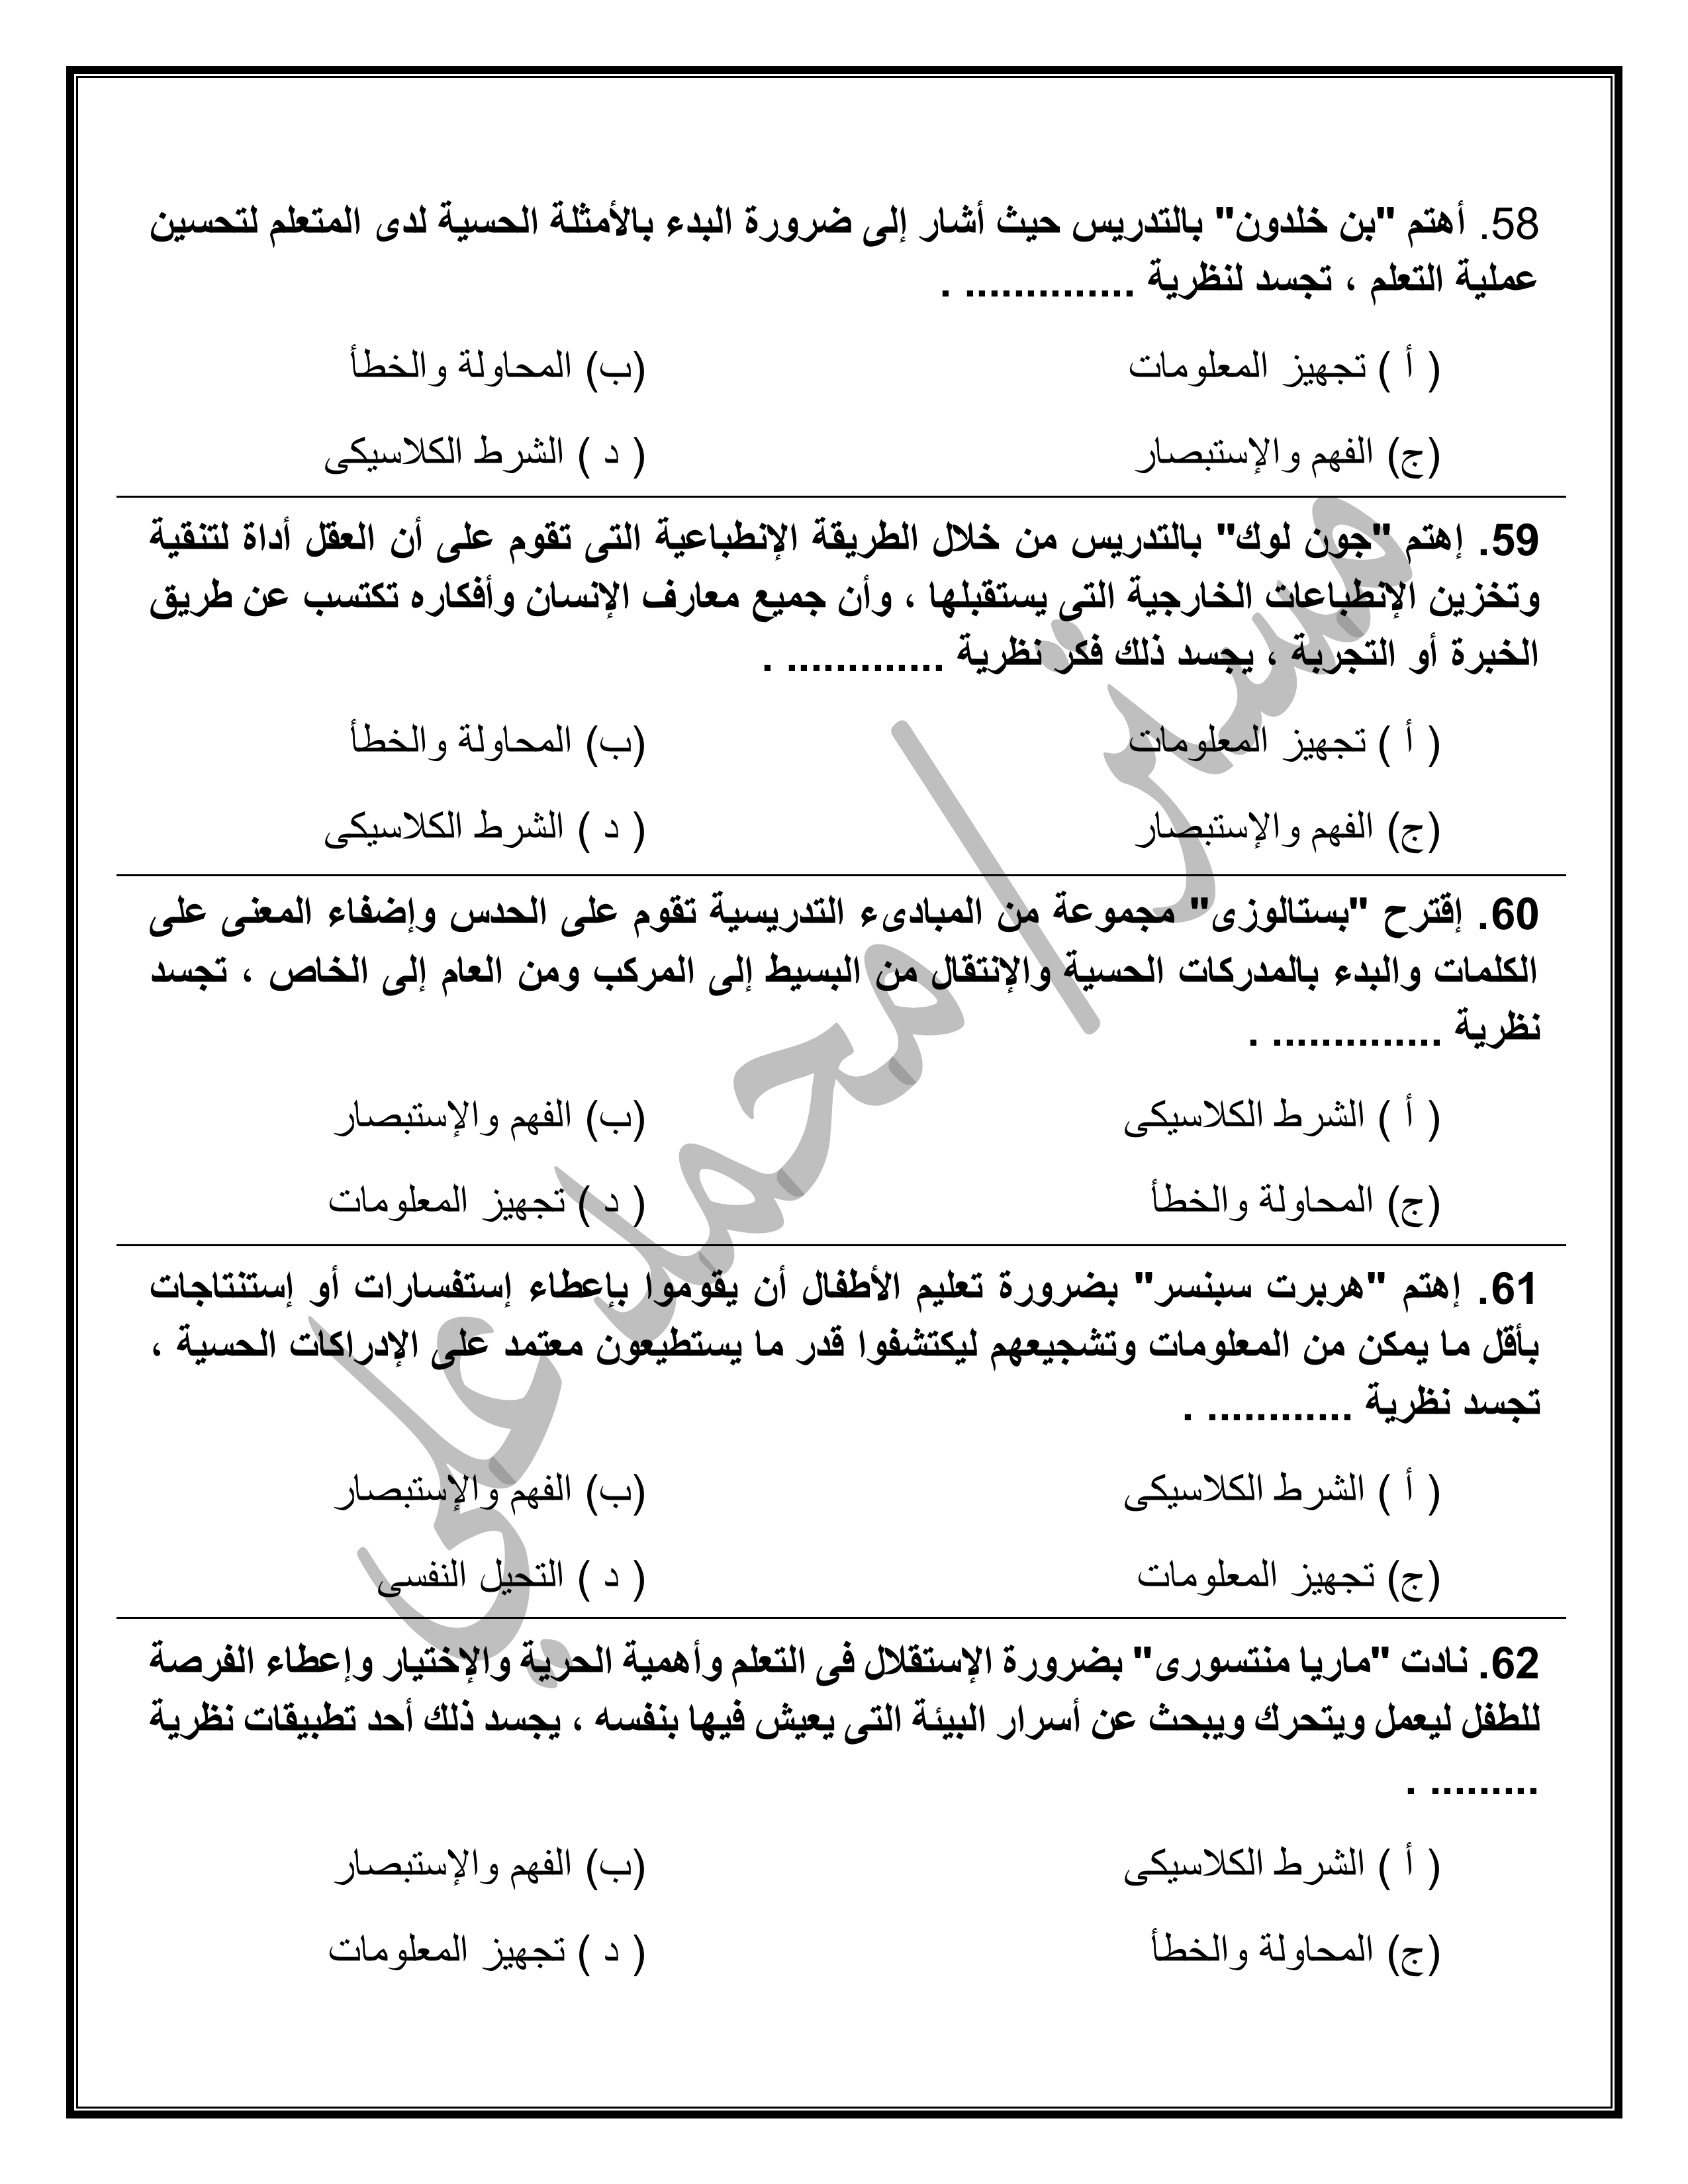 58. أهتم "بن خلدون" بالتدريس حيث أشار إلى ضرورة البدء بالأمثلة الحسية لدى المتعلم لتحسين
عملية التعلم ، تجسد لنظرية .............. .
( أ ) تجهيز المعلومات (ب) المحاولة والخطأ
(ج) الفهم والإستبصار ( د ) الشرط الكلاسيكى
59. إهتم "جون لوك" بالتدريس من خلال الطريقة الإنطباعية التى تقوم على أن العقل أداة لتنقية
وتخزين الإنطباعات الخارجية التى يستقبلها ، وأن جميع معارف الإنسان وأفكاره تكتسب عن طريق
الخبرة أو التجربة ، يجسد ذلك فكر نظرية ............. .
( أ ) تجهيز المعلومات (ب) المحاولة والخطأ
(ج) الفهم والإستبصار ( د ) الشرط الكلاسيكى
60. إقترح "بستالوزى" مجموعة من المبادىء التدريسية تقوم على الحدس وإضفاء المعنى على
الكلمات والبدء بالمدركات الحسية والإنتقال من البسيط إلى المركب ومن العام إلى الخاص ، تجسد
نظرية .............. .
( أ ) الشرط الكلاسيكى (ب) الفهم والإستبصار
(ج) المحاولة والخطأ ( د ) تجهيز المعلومات
61. إهتم "هربرت سبنسر" بضرورة تعليم الأطفال أن يقوموا بإعطاء إستفسارات أو إستنتاجات
بأقل ما يمكن من المعلومات وتشجيعهم ليكتشفوا قدر ما يستطيعون معتمد على الإدراكات الحسية ،
تجسد نظرية ............ .
( أ ) الشرط الكلاسيكى (ب) الفهم والإستبصار
(ج) تجهيز المعلومات ( د ) التحيل النفسى
62. نادت "ماريا منتسورى" بضرورة الإستقلال فى التعلم وأهمية الحرية والإختيار وإعطاء الفرصة
للطفل ليعمل ويتحرك ويبحث عن أسرار البيئة التى يعيش فيها بنفسه ، يجسد ذلك أحد تطبيقات نظرية
......... .
( أ ) الشرط الكلاسيكى (ب) الفهم والإستبصار
(ج) المحاولة والخطأ ( د ) تجهيز المعلومات
مستر / محمد علي